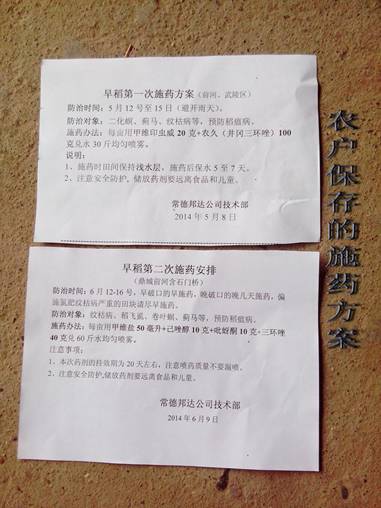 早稻第一次施药方案（前河、武陵区）
防治时间：5月12号至15日（避开雨天）。
防治对象：二化螟、蓟马、纹枯病等，预防稻瘟病。
施药办法：每亩用甲维印虫威20克+农久（井冈三环唑）100
克兑水30斤均匀喷雾。
说明：
1、施药时田间保持浅水层，施药后保水5至7天。
2、注意安全防护，储放药剂要远离食品和儿童。
常德邦达公司技术部
2014年5月8日
早稻第二次施药安排
（鼎城前河含石门桥）
防治时间：6月12-16号，早破口的早施药，晚破口的晚几天施药，偏
施氮肥纹枯病严重的田块请尽早施药。
防治对象：纹枯病、稻飞虱、卷叶螟、蓟马等，预防稻瘟病。
施药办法：每亩用甲维盐50毫升+已唑醇10克+吡蚜酮10克+三环唑
40克兑60斤水均匀喷雾。
注意事项：
1、本次药剂的持效期为20天左右，注意喷药质量不要漏喷。
2、注意安全防护，储放药剂要远离食品和儿童。
常德邦达公司技术部
2014年6月9日
农户保存的施药方案